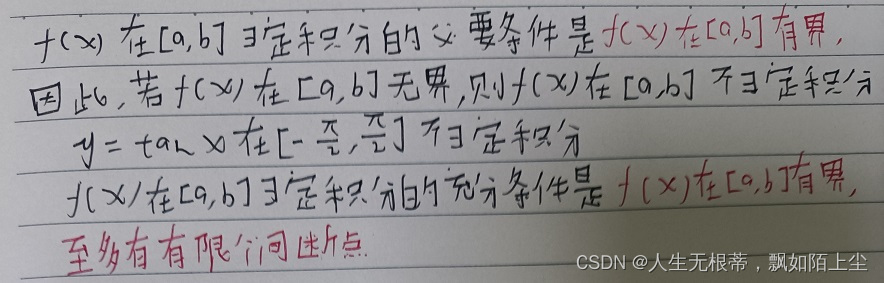 f(x)在[a,b]∃定积分的必要条件是f(x)在[a,b]有界,
因此,若f(x)在[a,b]无界,则f(x)在[a,b]不∃定积分
y=tanx在[-π/2,π/2]不∃定积分
f(x)在[a,b]∃定积分的充分条件是f(x)在[a,b]有界,
至多有有限个间断点
CSDN @人生无根蒂，飘如陌上尘